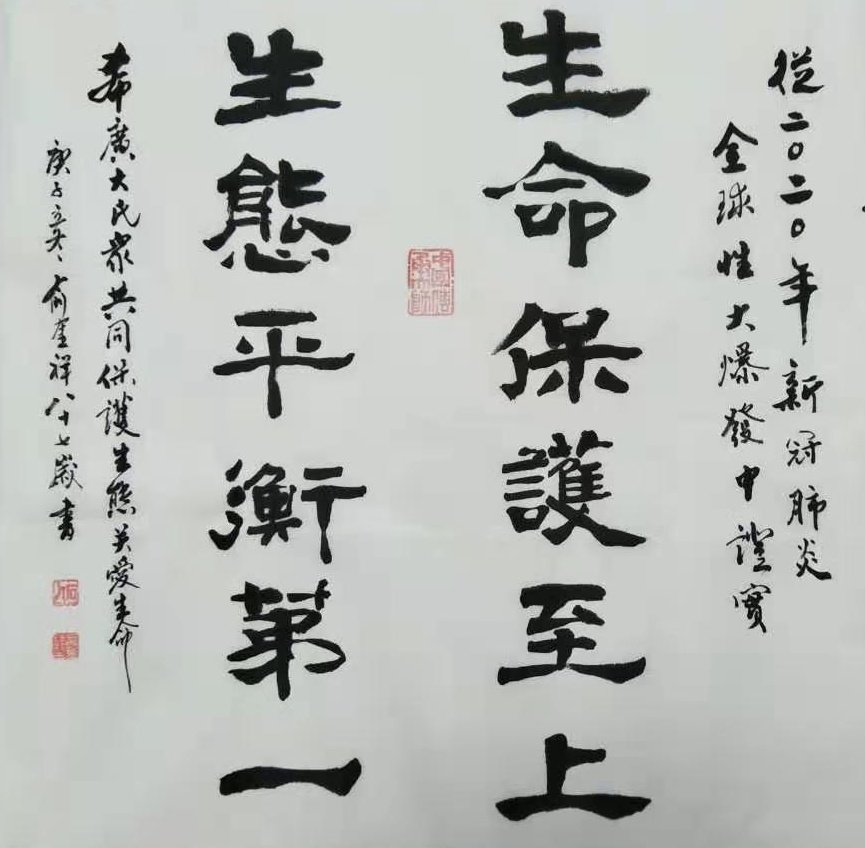 從二〇二〇年新冠肺炎
全球性大爆發中證實
生命保護至上
生態平衡第一
希廣大民眾共同保護生態关愛生命
庚子 俞奎祥八十七歲書